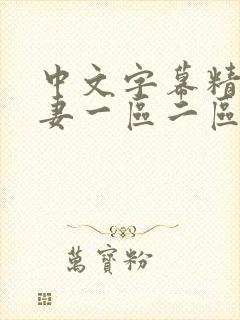 中文字幕精
妻一區二區
萬寶粉